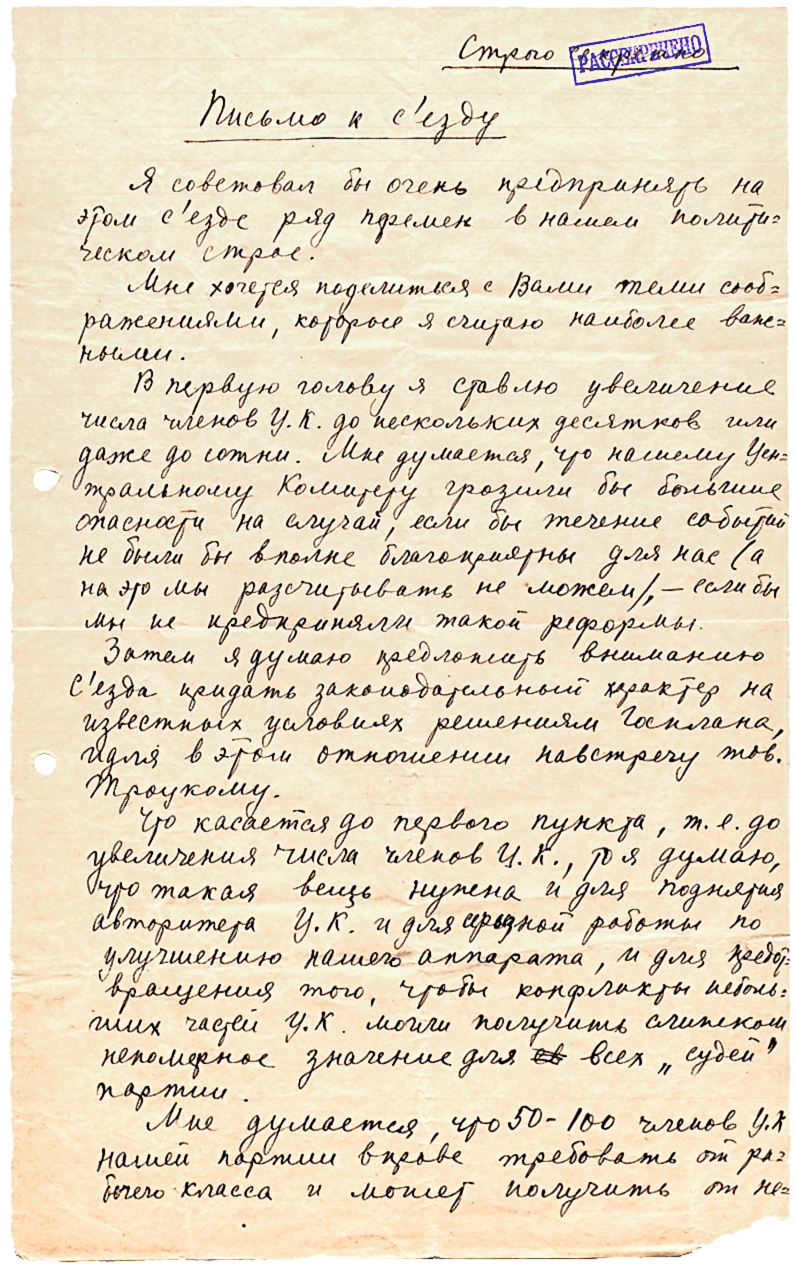 Строго секретно
РАССЕКРЕЧЕНО
Письмо к с'езду
Я советовал бы очень предпринять на
этом с'езде ряд перемен в нашем полити=
ческом строе.
Мне хочется поделиться с Вами теми сооб=
ражениями, которые я считаю наиболее важ=
ными.
В первую голову я ставлю увеличение
числа членов Ц.К. до нескольких десятков или
даже до сотни. Мне думается, что нашему Цен=
тральному Комитету грозили бы большие
опасности на случай, если бы течение событий
не были бы вполне благоприятны для нас (а
на это мы рассчитывать не можем), – если бы
мы не предприняли такой реформы.
Затем я думаю предложить вниманию
С'езда придать законодательный характер на
известных условиях решениям Госплана,
идя в этом отношении навстречу тов.
Троцкому.
Что касается до первого пункта, т.е. до
увеличения числа членов Ц.К., то я думаю,
что такая вещь нужна и для поднятия
авторитета Ц.К. и для серьезной работы по
улучшению нашего аппарата, и для предот=
вращения того, чтобы конфликты неболь=
ших частей Ц.К. могли получить слишком
непомерное значение для всех „судей"
партии.
Мне думается, что 50–100 членов Ц.К
нашей партии вправе требовать от ра=
бочего класса и может получить от не=